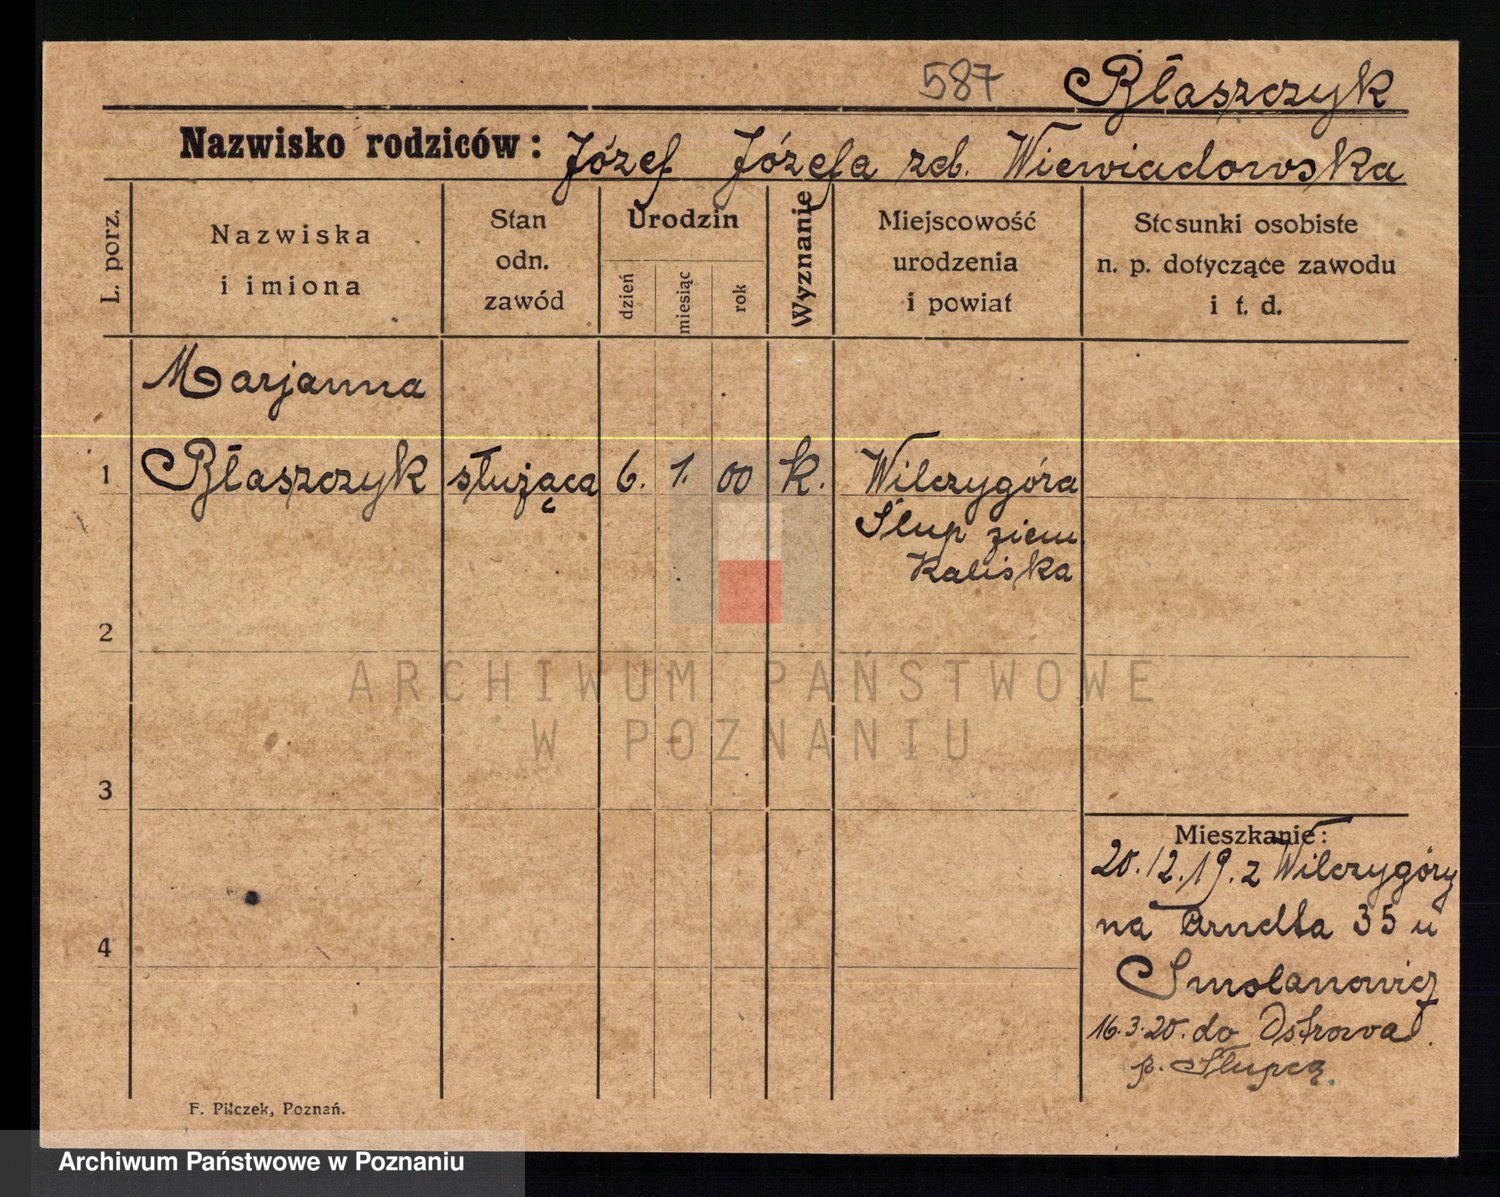 587 Błaszczyk
Nazwisko rodziców: Józef Józefa zd. Wiewiadowska
L. porz.
Nazwiska
i imiona
Stan
odn.
zawód
Urodzin
dzień
miesiąc
rok
Wyznanie
Miejscowość
urodzenia
i powiat
Stosunki osobiste
n. p. dotyczące zawodu
i t. d.
Marjanna
1 Błaszczyk służąca 6. 1. 00 k. Wilczygóra
Słup ziem
Kaliska
2
3
4
Mieszkanie:
20.12.19. z Wilczygóry
na Arndta 35 u
Smolanowicz
16.3.20. do Ostrowa.
p. Słupcą.
F. Pilczek, Poznań.
ARCHIWUM PAŃSTWOWE
W POZNANIU
Archiwum Państwowe w Poznaniu